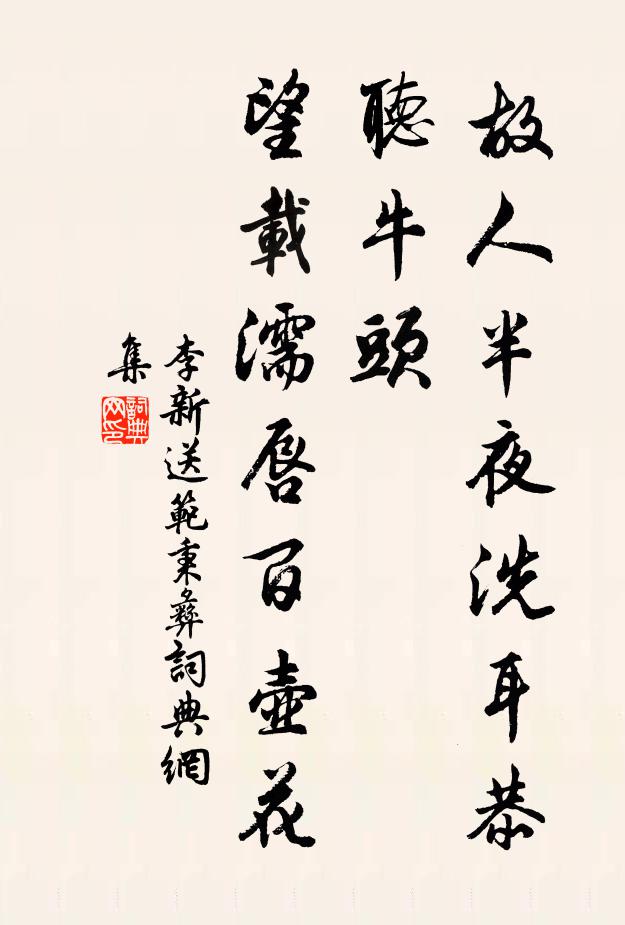 故人半夜洗耳恭
聽牛頭
望載濡唇百壺花
李新送範秉彝詞典網
集
詞典
网印